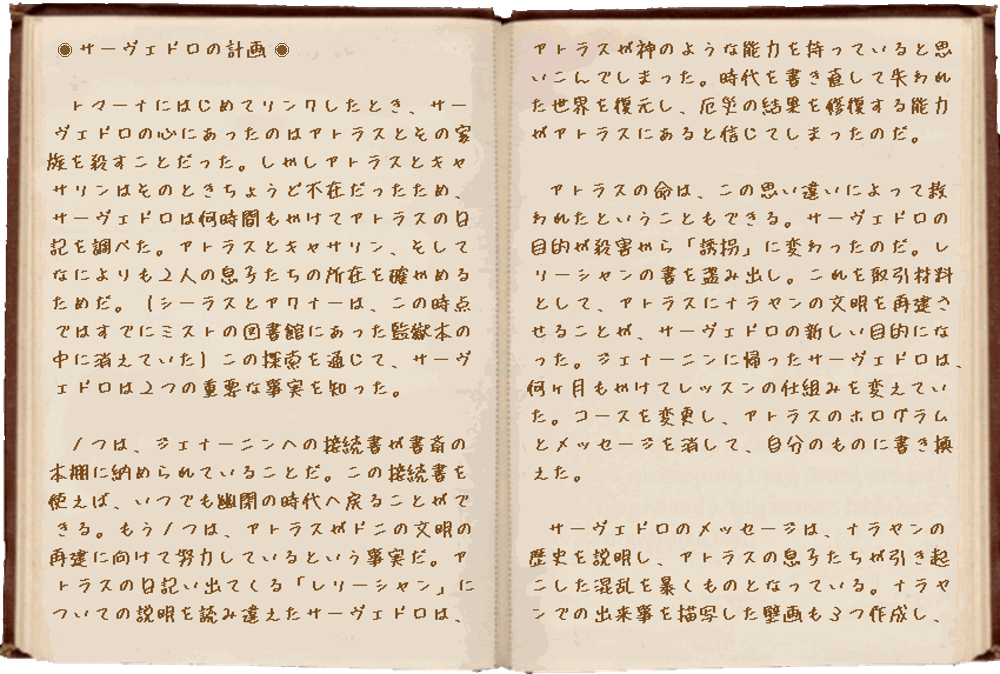 ◉サーヴェドロの計画◉
トマーナにはじめてリンクしたとき、サー
ヴェドロの心にあったのはアトラスとその家
族を殺すことだった。しかしアトラスとキャ
サリンはそのときちょうど不在だったため、
サーヴェドロは何時間もかけてアトラスの日
記を調べた。アトラスとキャサリン、そして
なによりも2人の息子たちの所在を確かめる
ためだ。(シーラスとアクナーは、この時点
ではすでにミストの図書館にあった監獄本の
中に消えていた)この探索を通じて、サーヴ
ェドロは2つの重要な事実を知った。
1つは、ジェナーニンへの接続書が書斎の
本棚に納められていることだ。この接続書を
使えば、いつでも幽閉の時代へ戻ることがで
きる。もう1つは、アトラスがドニの文明の
再建に向けて努力しているという事実だ。ア
トラスの日記い出てくる「レリーシャン」に
ついての説明を読み違えたサーヴェドロは、
アトラスが神のような能力を持っていると思
いこんでしまった。時代を書き直して失われ
た世界を復元し、厄災の結果を修復する能力
がアトラスにあると信じてしまったのだ。
アトラスの命は、この思い違いによって救
われたということもできる。サーヴェドロの
目的が殺害から「誘拐」に変わったのだ。レ
リーシャンの書を盗み出し。これを取引材料
として、アトラスにナラヤンの文明を再建さ
せることが、サーヴェドロの新しい目的にな
った。ジェナーニンに帰ったサーヴェドロは、
何ヶ月もかけてレッスンの仕組みを変えてい
た。コースを変更し、アトラスのホログラム
とメッセージを消して、自分のものに書き換
えた。
サーヴェドロのメッセージは、ナラヤンの
歴史を説明し、アトラスの息子たちが引き起
こした混乱を暴くものとなっている。ナラヤ
ンでの出来事を描写した壁画も3つ作成し、